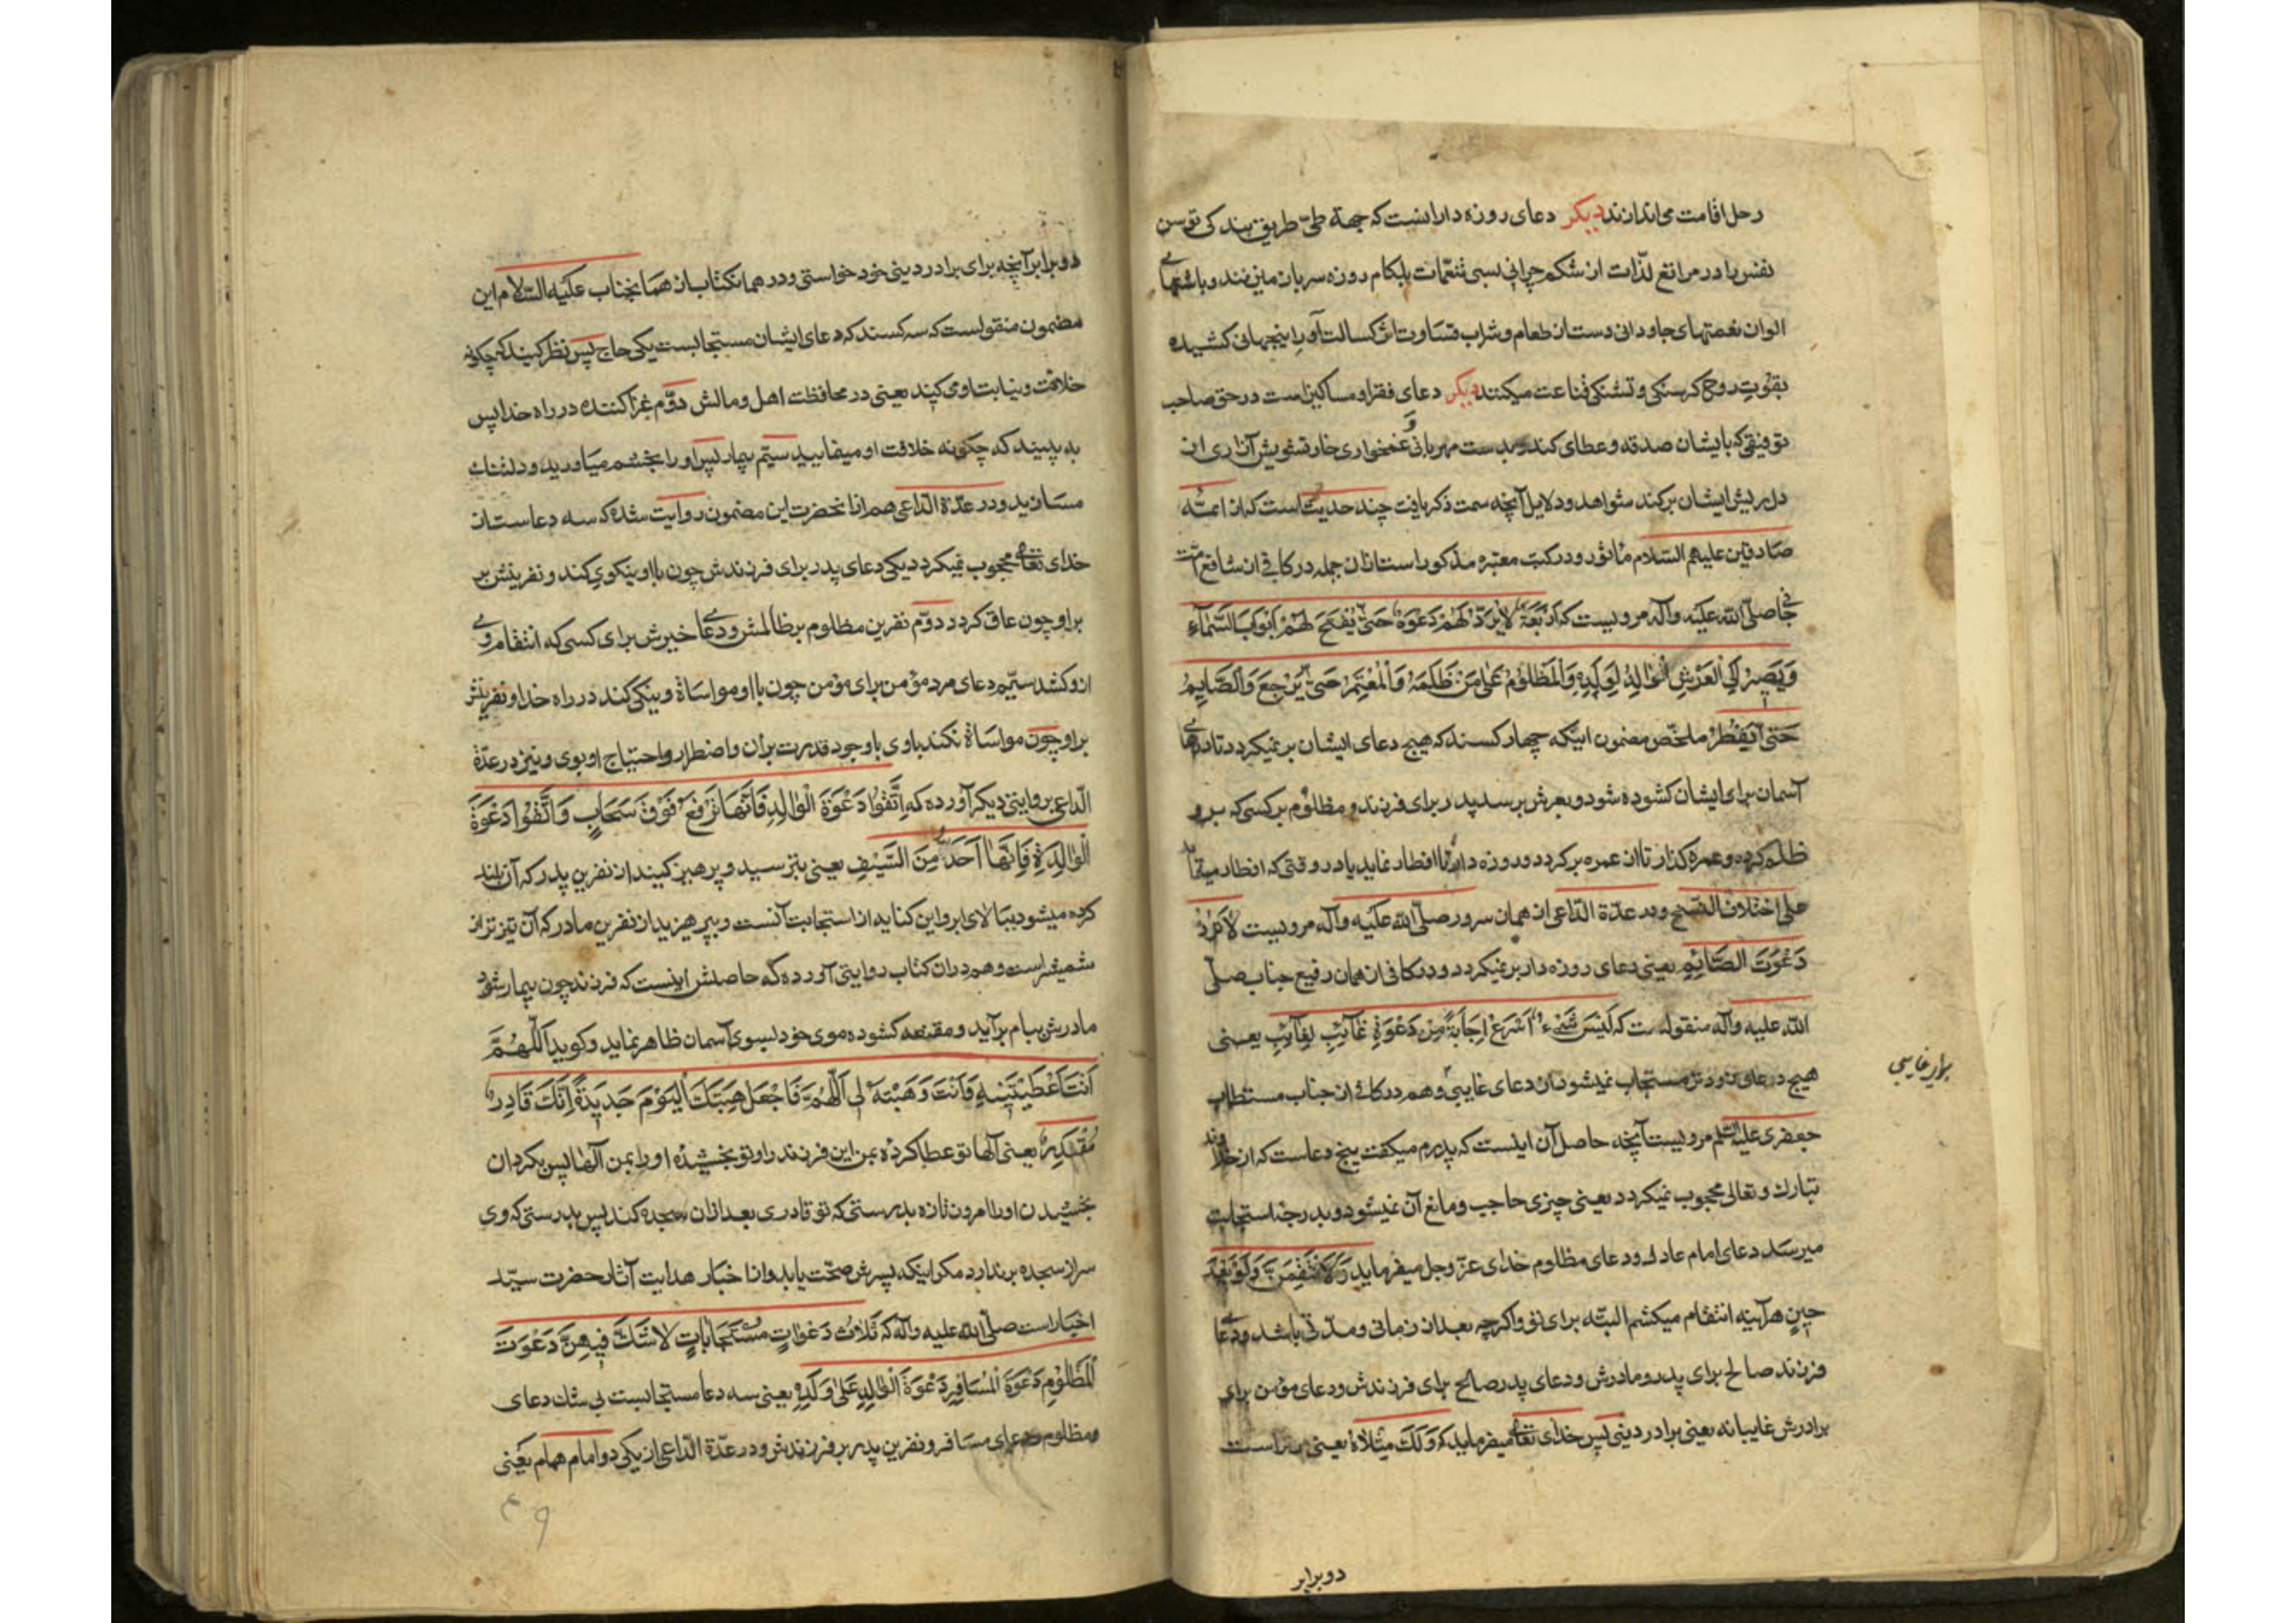 رحل اقامت می‌اندازند دیکر دعای روزه دارانست که جهة طیّ طریق بندکی توسن
نفس را در مراتع لذّات از شکم چرانی بسی تنعّمات بلکام روزه سر باز میزنند و باشتهای
الوان نعمتهای جاودانی دست از طعام و شراب قساوت اثر کسالت آور اینجهانی کشیده
بقوّت روح کرسنکی و تشنکی قناعت میکنند دیکر دعای فقرا و مساکین است در حق صاحب
توفیقی که بایشان صدقه و عطای کند و بدست مهربانی و غمخواری خار تشویش آزاری از
دل ریش ایشان برکند شواهد و دلایل آنچه سمت ذکر یافت چند حدیث است که از ائمّه
صادقین علیهم السلام مأثور و در کتب معتبره مذکور است از ان جمله در کافی از شافع امّت
صلّی اللّه علیه وآله مرویست که اَرْبَعَةٌ لا یُرَدُّ لَهُمْ دَعْوَةٌ حَتّی یُفْتَحَ لَهُمْ اَبْوابُ السَّمآءِ
وَ یَصِیرُ اِلَی الْعَرْشِ اَلْوالِدُ لِوَلَدِهِ وَالْمَظْلُومُ عَلی مَنْ ظَلَمَهُ وَالْمُعْتَمِرُ حَتّی یَرْجِعَ وَالصَّایِمُ
حَتّی یُفْطِرَ ملخّص مضمون اینکه چهار کسند که هیچ دعای ایشان بر نمیکردد تا درهای
آسمان برای ایشان کشوده شود و بعرش برسد پدر برای فرزند و مظلوم بر کسی که برو
ظلم کرده و عمره کذار تا از عمره برکردد و روزه دار تا افطار نماید یا در وقتی که افطار مینماید
علی اختلاف النسخ و در عدّة الدّاعی از همان سرور صلّی اللّه علیه وآله مرویست لا تُرَدُّ
دَعْوَتُ الصّائِمِ یعنی دعای روزه دار بر نمیکردد و در کافی از همان رفیع جناب صلّی
اللّه علیه وآله منقولست که لَیْسَ شَیْءٌ اَسْرَعَ اِجابَةً مِنْ دَعْوَةِ غآیِبٍ لِغآیِبٍ یعنی
هیچ دعای زودتر مستجاب نمیشود از دعای غایبی و هم در کافی از جناب مستطاب
جعفری علیه السّلام مرویست آنچه حاصل آن اینست که پدرم میکفت پنج دعاست که از خداوند
تبارک و تعالی محجوب نمیکردد یعنی چیزی حاجب و مانع آن نمیشود و بدرجۀ استجابت
میرسد دعای امام عادل و دعای مظلوم خدای عزّ وجل میفرماید لَاَنْتَقِمَنَّ لَکَ وَلَوْ بَعْدَ
حِینٍ هرآینه انتقام میکشم البتّه برای تو و اکرچه بعد از زمانی و مدّتی باشد و دعای
فرزند صالح برای پدر و مادرش و دعای پدر صالح برای فرزندش و دعای مؤمن برای
برادرش غایبانه یعنی برادر دینی پس خدای تعالی میفرماید که وَلَکَ مِثْلاهُ یعنی تراست
برادر غایبی
دو برابر
دو برابر آنچه برای برادر دینی خود خواستی و در همان کتاب از همانجناب علیه السّلام این
مضمون منقولست که سه کسند که دعای ایشان مستجابست یکی حاج پس نظر کنید که چکونه
خلافت و نیابت او می کنید یعنی در محافظت اهل و مالش دوّم غزا کننده در راه خدا پس
به بینید که چکونه خلافت او مینمایید سیّم بیمار پس او را بخشم میاورید و دلتنک
مسازید و در عدّة الدّاعی هم از انحضرت این مضمون روایت شده که سه دعاست از
خدای تعالی محجوب نمیکردد یکی دعای پدر برای فرزندش چون با او نیکوی کند و نفرینش بر
براو چون عاق کردد دوّم نفرین مظلوم بر ظالمش و دعای خیرش برای کسی که انتقام وی
ازو کشد سیّم دعای مرد مؤمن برای مؤمن چون با او مواساة و نیکی کند در راه خدا و نفرینش
براو چون مواساة نکند با وی با وجود قدرت بران و اضطرار و احتیاج او بوی و نیز در عدّة
الدّاعی بروایتی دیکر آورده که اِتَّقُوا دَعْوَةَ الْوالِدِ فَاِنَّها تُرْفَعُ فَوْقَ سَحابٍ وَ اتَّقُوا دَعْوَةَ
الْوالِدَةِ فَاِنَّها اَحَدُّ مِنَ السَّیْفِ یعنی بترسید و پرهیز کنید از نفرین پدر که آن بلند
کرده میشود ببالای ابر و این کنایه از استجابت آنست و بپرهیزید از نفرین مادر که آن تیزتر از
شمشیر است و هم دران کتاب روایتی آورده که حاصلش اینست که فرزند چون بیمار شود
مادرش ببام برآید و مقنعه کشوده موی خود بسوی آسمان ظاهر نماید و کوید اَللّهُمَّ
اَنْتَ اَعْطَیْتَنِیهِ وَ اَنْتَ وَهَبْتَهُ لِی اَللّهُمَّ فَاجْعَلْ هِبَتَکَ الْیَوْمَ جَدِیدَةً اِنَّکَ قادِرٌ
مُقْتَدِرٌ یعنی آلها تو عطا کردۀ بمن این فرزند را و تو بخشیدۀ او را بمن آلها پس بکردان
بخشیدن او را امروز تازه بدرستی که تو قادری بعد ازان سجده کند پس بدرستی که وی
سر از سجده برندارد مکر اینکه پسرش صحّت یابد و از اخبار هدایت آثار حضرت سیّد
اخیار است صلّی اللّه علیه وآله که ثَلاثُ دَعَواتٍ مُسْتَجاباتٍ لا شَکَّ فِیهِنَّ دَعْوَتُ
الْمَظْلُومِ دَعْوَةُ الْمُسافِرِ دَعْوَةُ الْوالِدِ عَلی وَلَدِهِ یعنی سه دعا مستجابست بی شک دعای
مظلوم و دعای مسافر و نفرین پدر بر فرزندش و در عدّة الدّاعی از یکی دو امام همام یعنی